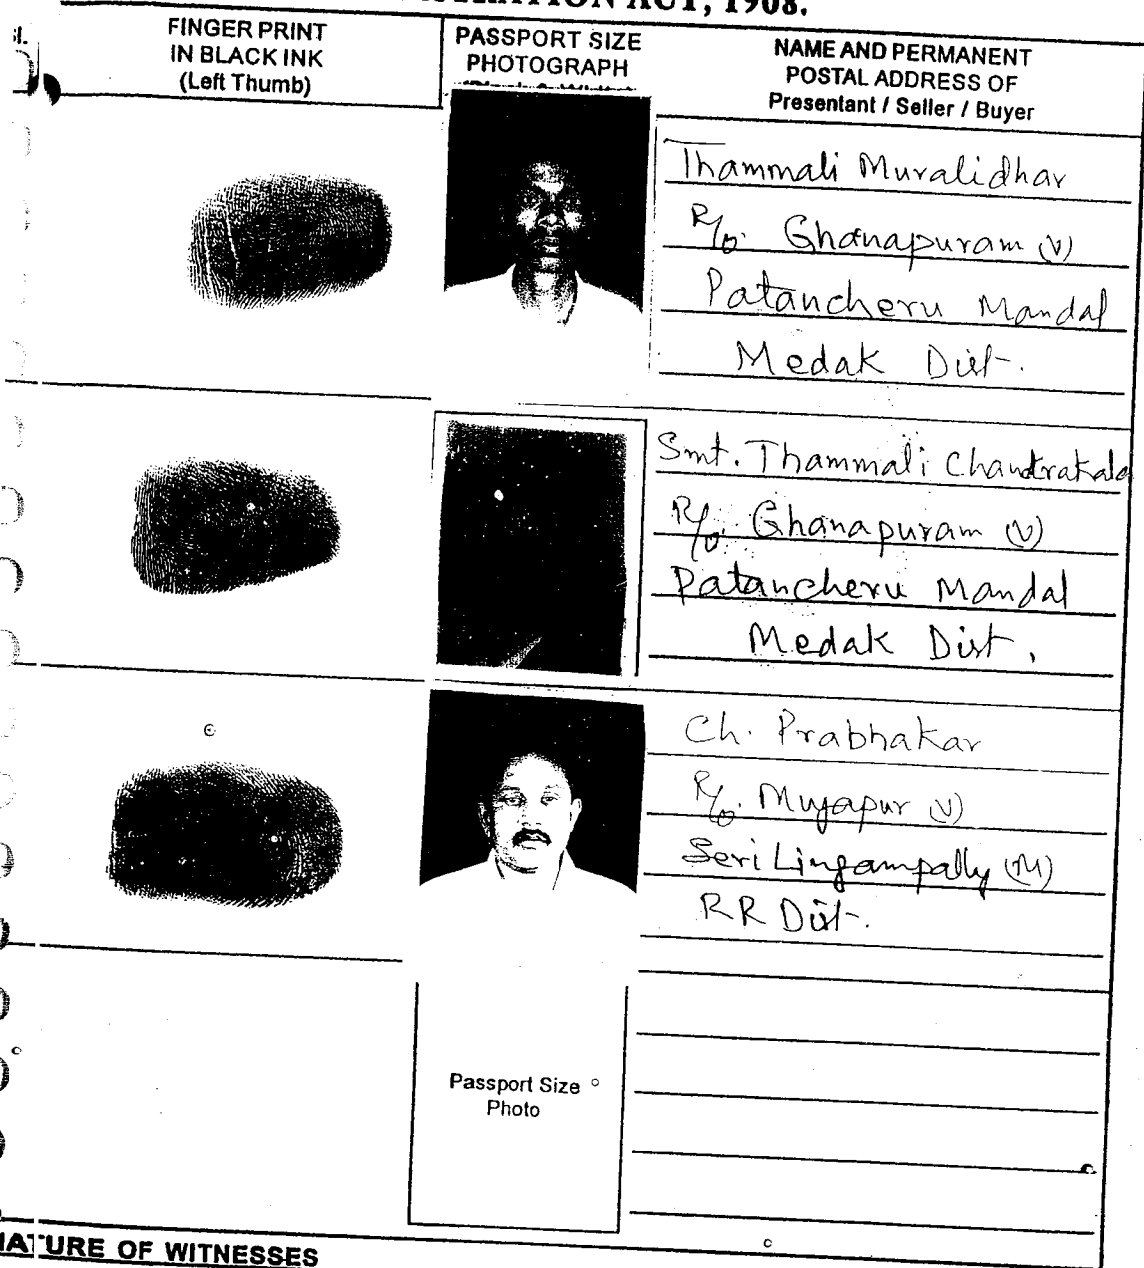 ACT, 1908.
FINGER PRINT
IN BLACK INK
(Left Thumb)
PASSPORT SIZE
PHOTOGRAPH
NAME AND PERMANENT
POSTAL ADDRESS OF
Presentant / Seller / Buyer
Thammali Muralidhar
R/o. Ghanapuram (V)
Patancheru Mandal
Medak Dist.
Smt. Thammali Chandrakala
R/o. Ghanapuram (V)
Patancheru Mandal
Medak Dist.
Ch. Prabhakar
R/o. Miyapur (V)
Seri Lingampally (M)
RR Dist.
Passport Size
Photo
NATURE OF WITNESSES